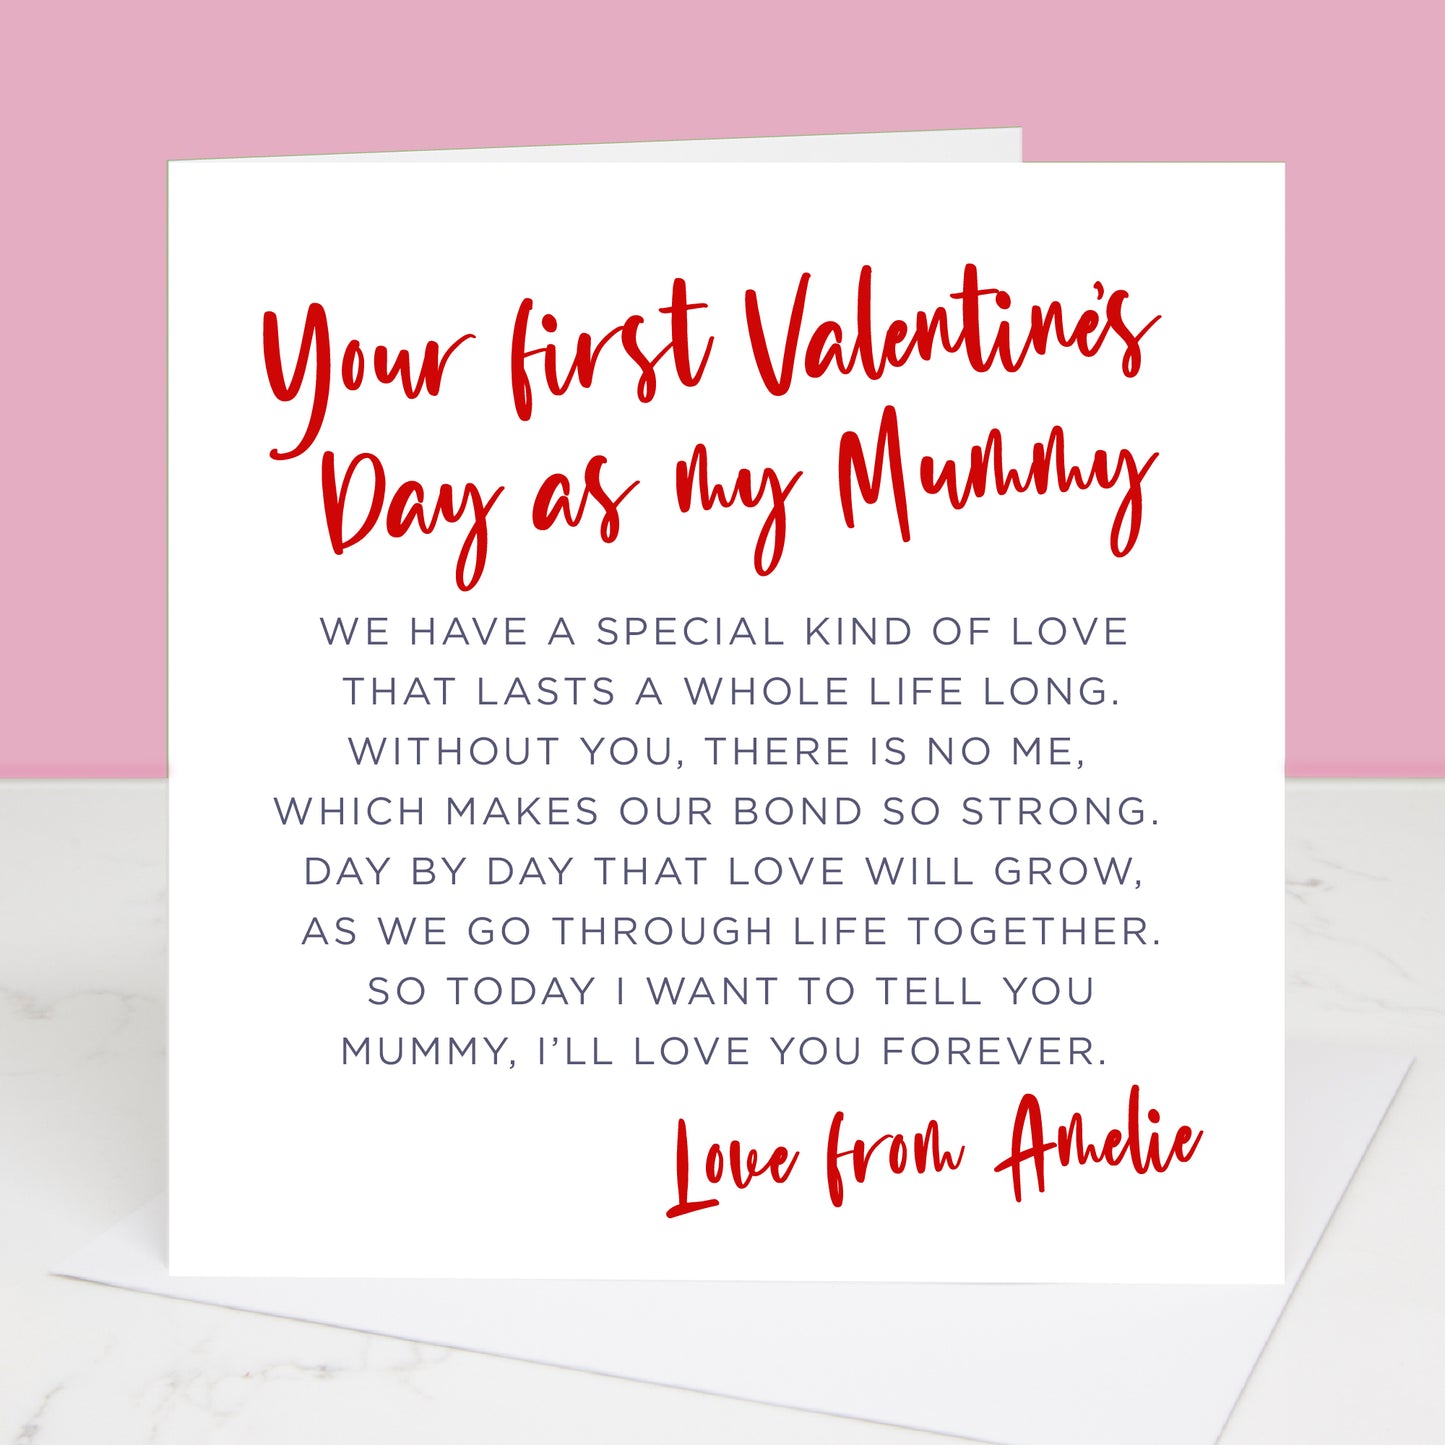 Your first Valentine's
Day as my Mummy
WE HAVE A SPECIAL KIND OF LOVE
THAT LASTS A WHOLE LIFE LONG.
WITHOUT YOU, THERE IS NO ME,
WHICH MAKES OUR BOND SO STRONG.
DAY BY DAY THAT LOVE WILL GROW,
AS WE GO THROUGH LIFE TOGETHER.
SO TODAY I WANT TO TELL YOU
MUMMY, I’LL LOVE YOU FOREVER.
Love from Amelie